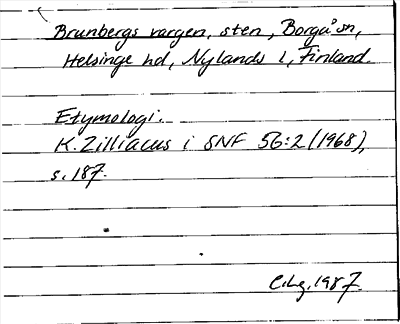 Brunbergs vargen, sten, Borgå sn,
Helsinge hd, Nylands l, Finland.
Etymologi.
K. Zilliacus i SNF 56:2 (1968),
s. 187.
C.Lg. 1987.